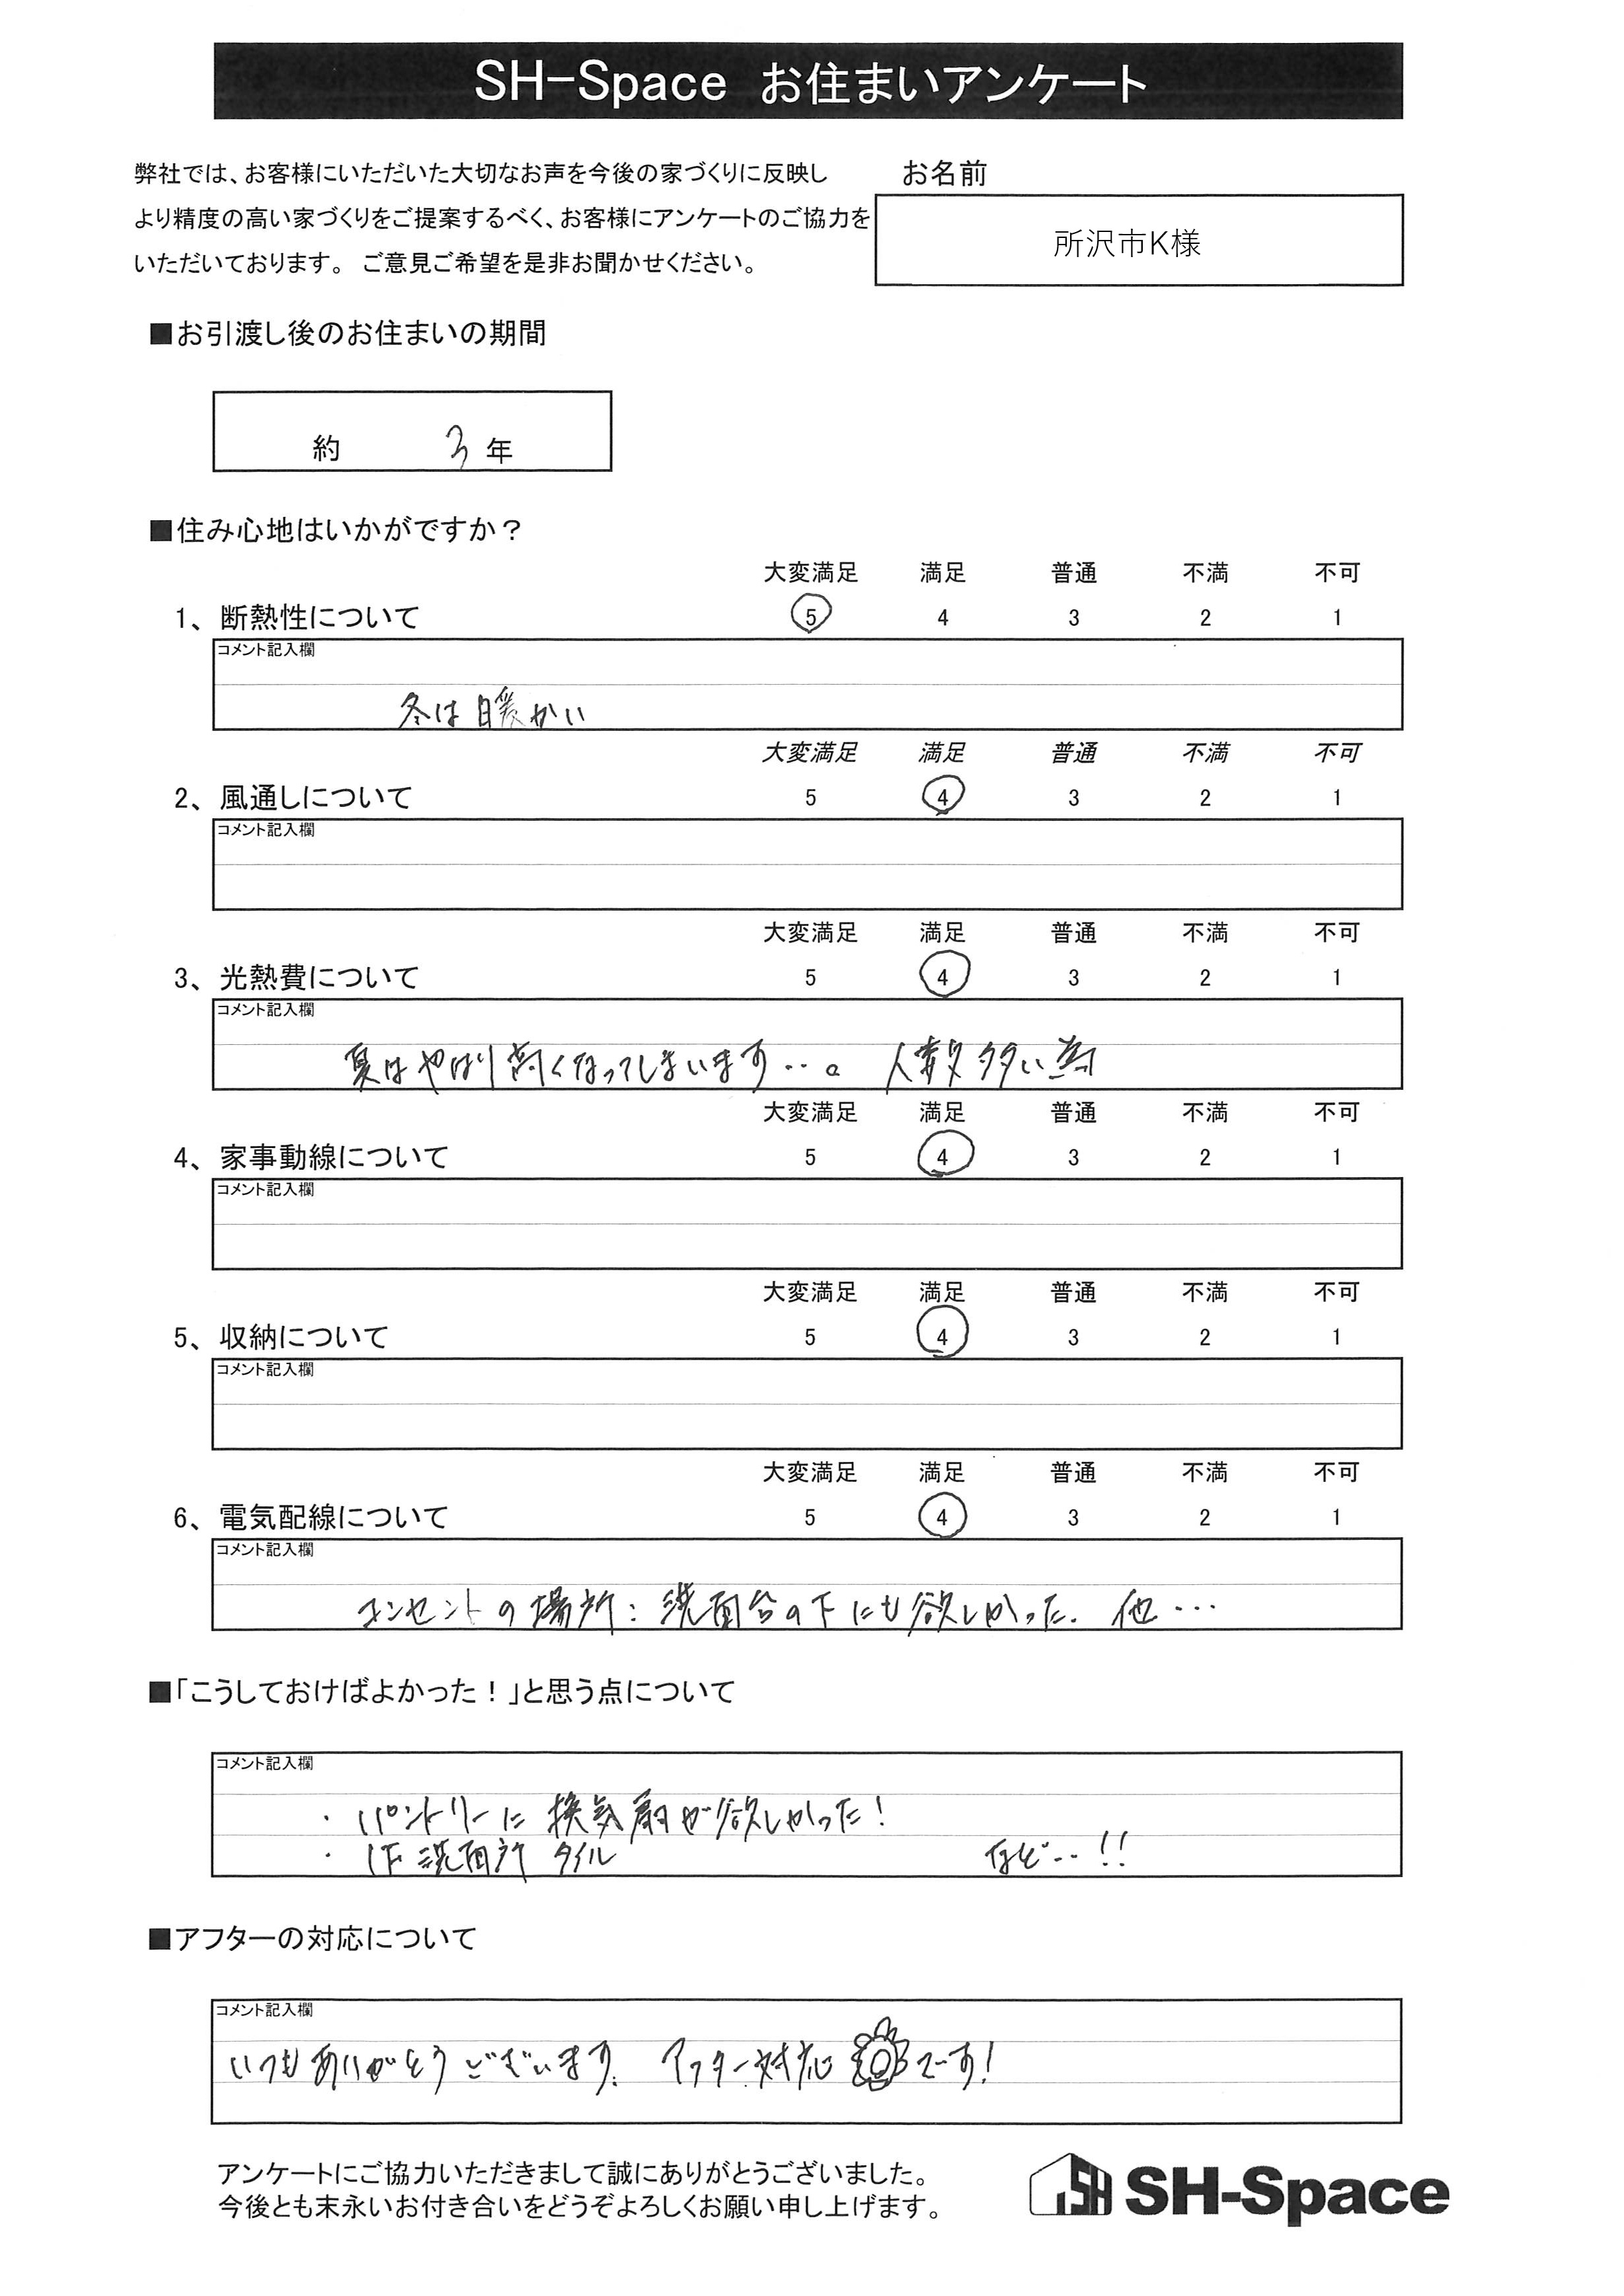 SH-Space お住まいアンケート
弊社では、お客様にいただいた大切なお声を今後の家づくりに反映し
より精度の高い家づくりをご提案するべく、お客様にアンケートのご協力を
いただいております。 ご意見ご希望を是非お聞かせください。
お名前
所沢市K様
■お引渡し後のお住まいの期間
約 3 年
■住み心地はいかがですか？
大変満足 満足 普通 不満 不可
1、断熱性について 5 4 3 2 1
コメント記入欄
冬は暖かい
大変満足 満足 普通 不満 不可
2、風通しについて 5 4 3 2 1
コメント記入欄
大変満足 満足 普通 不満 不可
3、光熱費について 5 4 3 2 1
コメント記入欄
夏はやはり高くなってしまいます…。 人数多い為
大変満足 満足 普通 不満 不可
4、家事動線について 5 4 3 2 1
コメント記入欄
大変満足 満足 普通 不満 不可
5、収納について 5 4 3 2 1
コメント記入欄
大変満足 満足 普通 不満 不可
6、電気配線について 5 4 3 2 1
コメント記入欄
コンセントの場所：洗面台の下にも欲しかった. 他…
■「こうしておけばよかった！」と思う点について
コメント記入欄
・パントリーに換気扇が欲しかった！
・1F洗面所タイル など…!!
■アフターの対応について
コメント記入欄
いつもありがとうございます. アフター対応 です！
アンケートにご協力いただきまして誠にありがとうございました。
今後とも末永いお付き合いをどうぞよろしくお願い申し上げます。
SH SH-Space